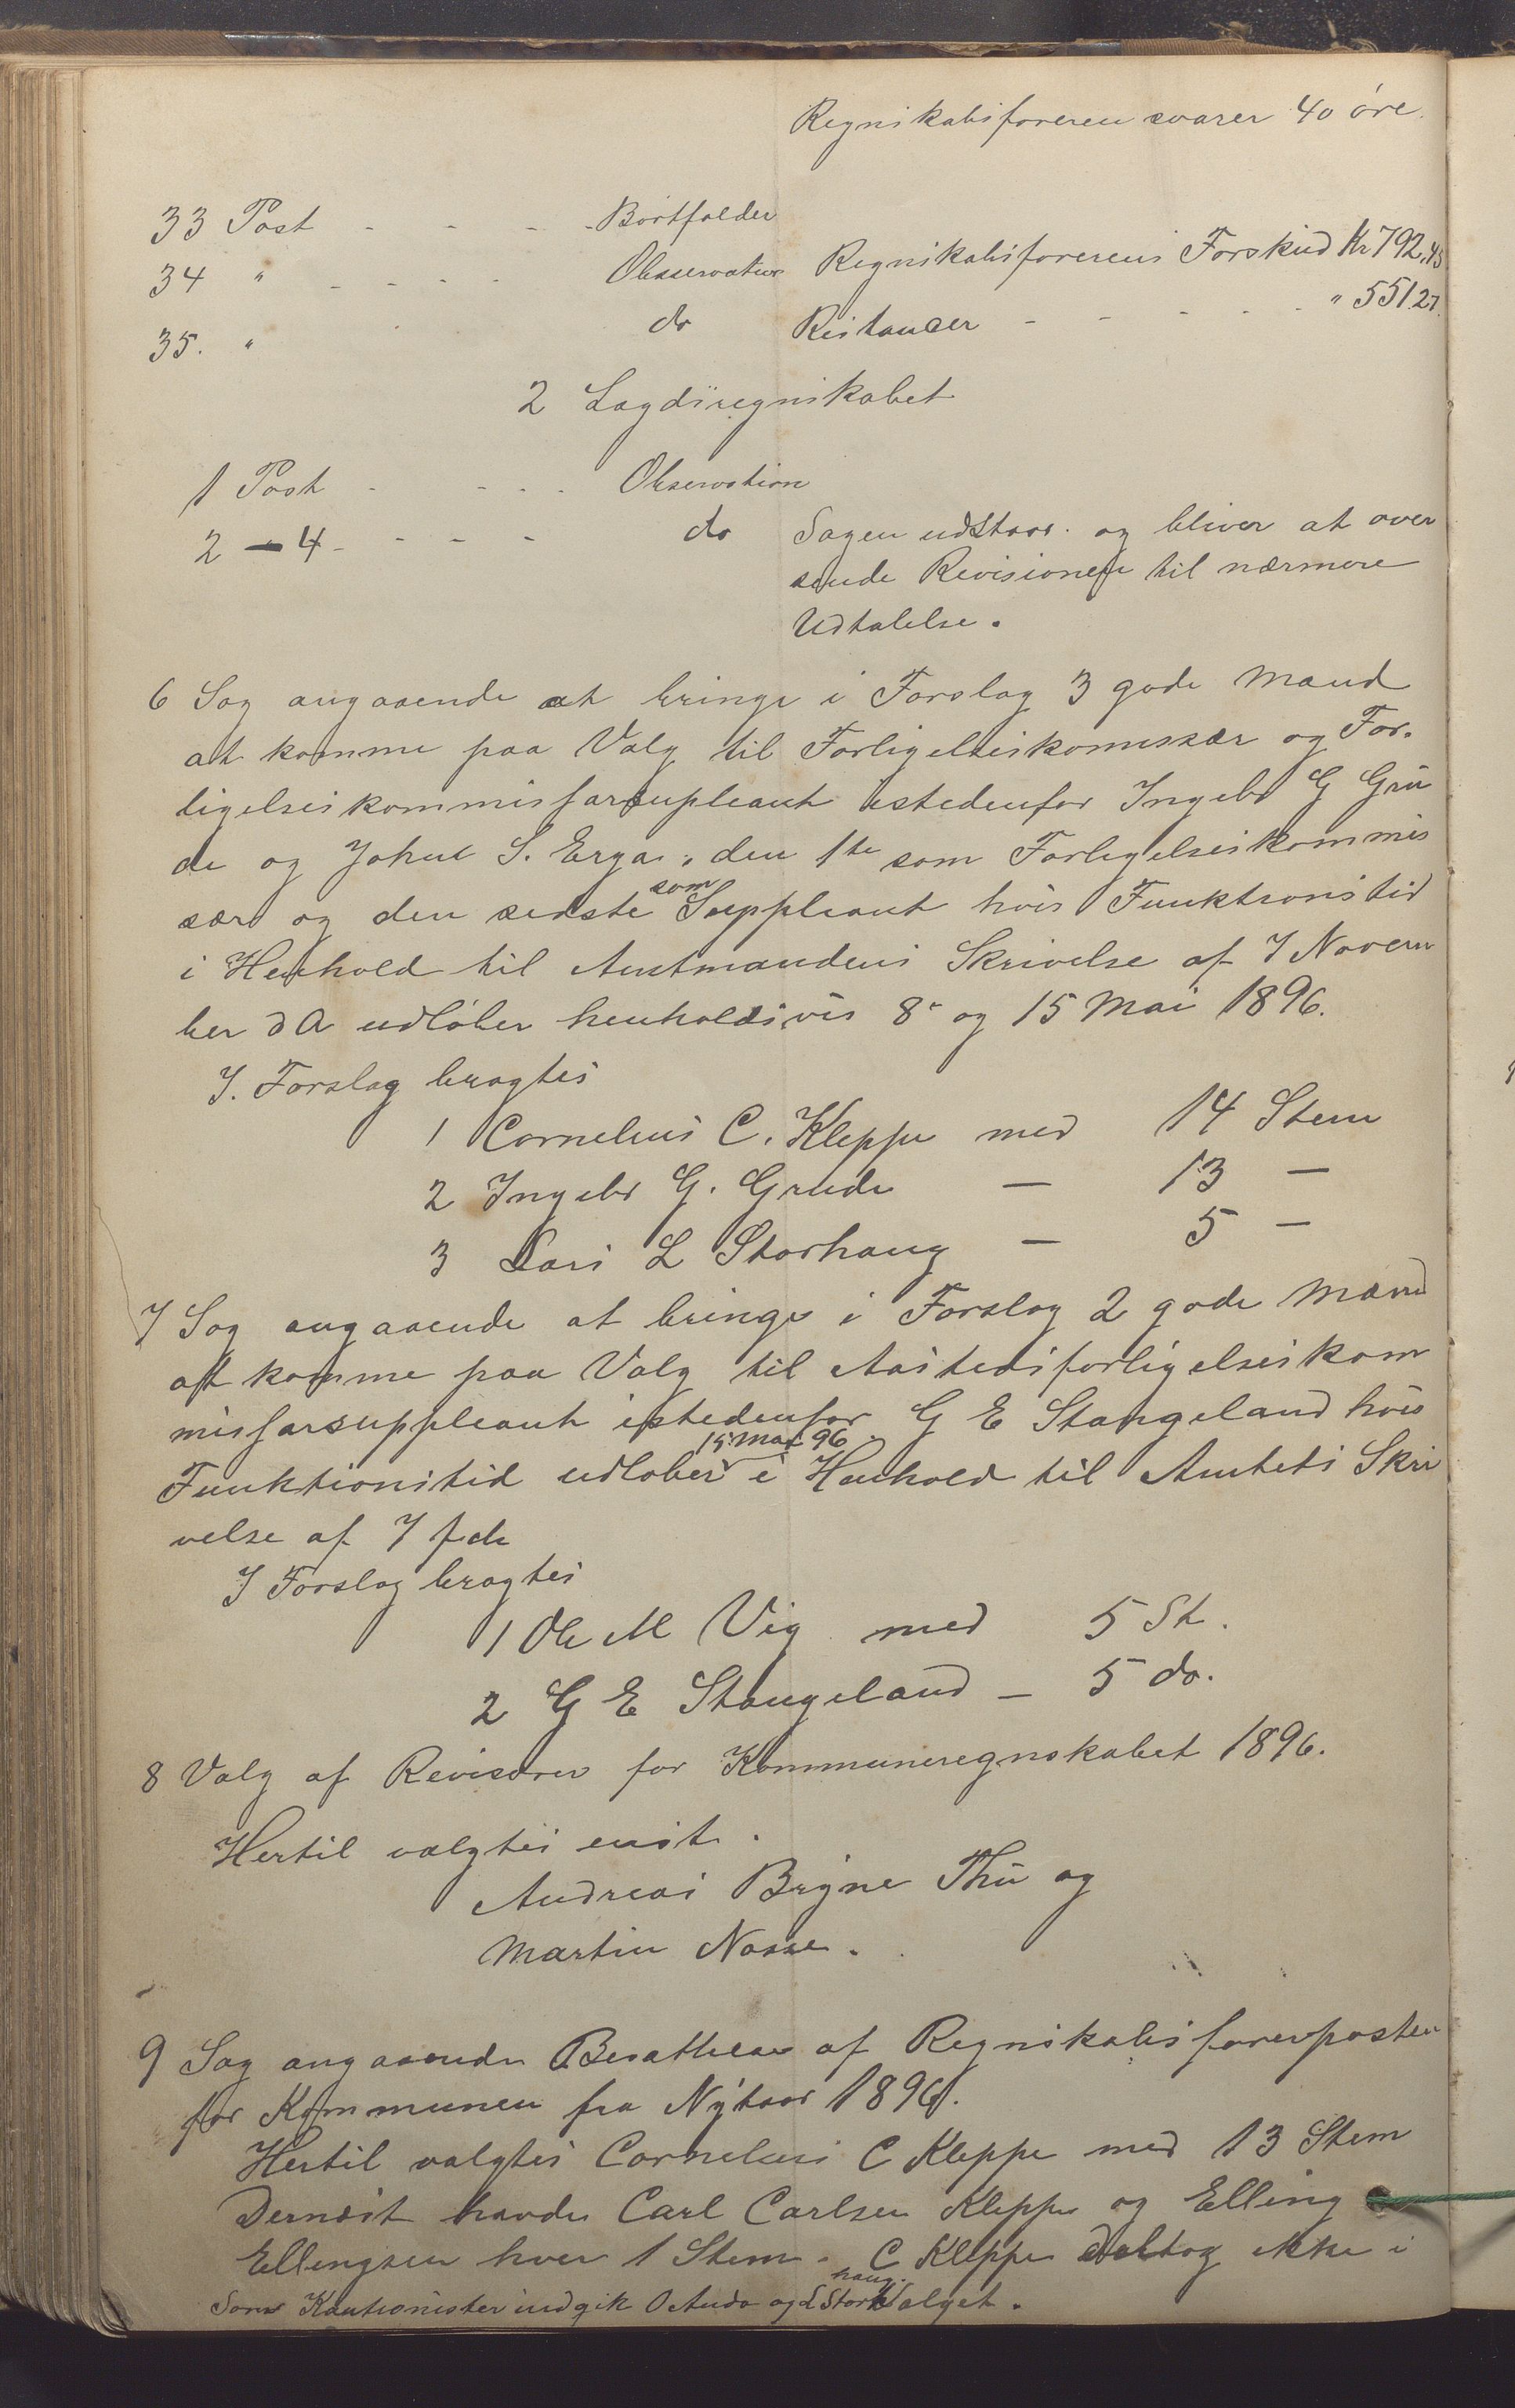 Regnskabsföreren svarer 40 öre.
33 Post - - - - Bortfalder
34 " - - - - Observation Regnskabsförerens Forskud Kr 792,45
35. " do Restancer - - - - - " 551.27.
2 Lægdsregnskabet
1 Post - - - - Observation
2 - 4 - - - - do Sagen udstaar. og bliver at over
sende Revisionen til nærmere
Udtalelse.
6 Sag angaaende at bringe i Forslag 3 gode Mænd
at komme paa Valg til Forligelseskomissær og For-
ligelseskommissærsupleant istedenfor Ingebr G Gru
de og Johul S. Erga, den 1te som Forligelseskommis
sær og den sidste som Suppleant hvis Funktionstid
i Henhold til Amtmandens Skrivelse af 7 Novem
ber d A udløber henholdsvis 8de og 15 Mai 1896.
I. Forslag bragtes
1 Cornelius C. Kleppe med 14 Stem
2 Ingebr G. Grude — 13 —
3 Lars L Storhaug — 5 —
7 Sag angaaende at bringe i Forslag 2 gode Mænd
at komme paa Valg til Aastedsforligelseskom
missærsuppleant istedenfor G E Stangeland hvis
Funktionstid udløber 15 Mai 96 i Henhold til Amtets Skri
velse af 7 f.de
I Forslag bragtes
1 Ole M Vig med 5 St.
2 G E Stangeland — 5 do.
8 Valg af Revisorer for Kommuneregnskabet 1896.
Hertil valgtes enst.
Andreas Bryne Thu og
Martin Nasse.
9 Sag angaaende Besættelse af Regnskabsförerposten
for Kommunen fra Nytaar 1896.
Hertil valgtes Cornelius C Kleppe med 13 Stem
Dernæst havde Carl Carlsen Kleppe og Elling
Ellingsen hver 1 Stem. C Kleppe deltog ikke i
Som Kautionister indgik O Anda og L Storhaug. Valget.